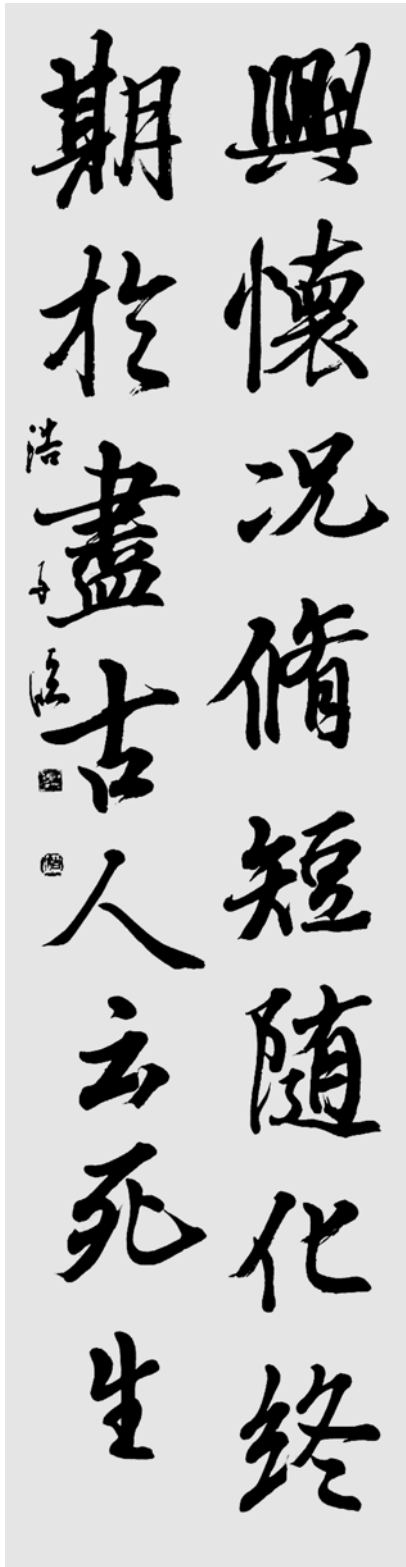 興懷况脩短随化終
期於盡古人云死生
浩年臨